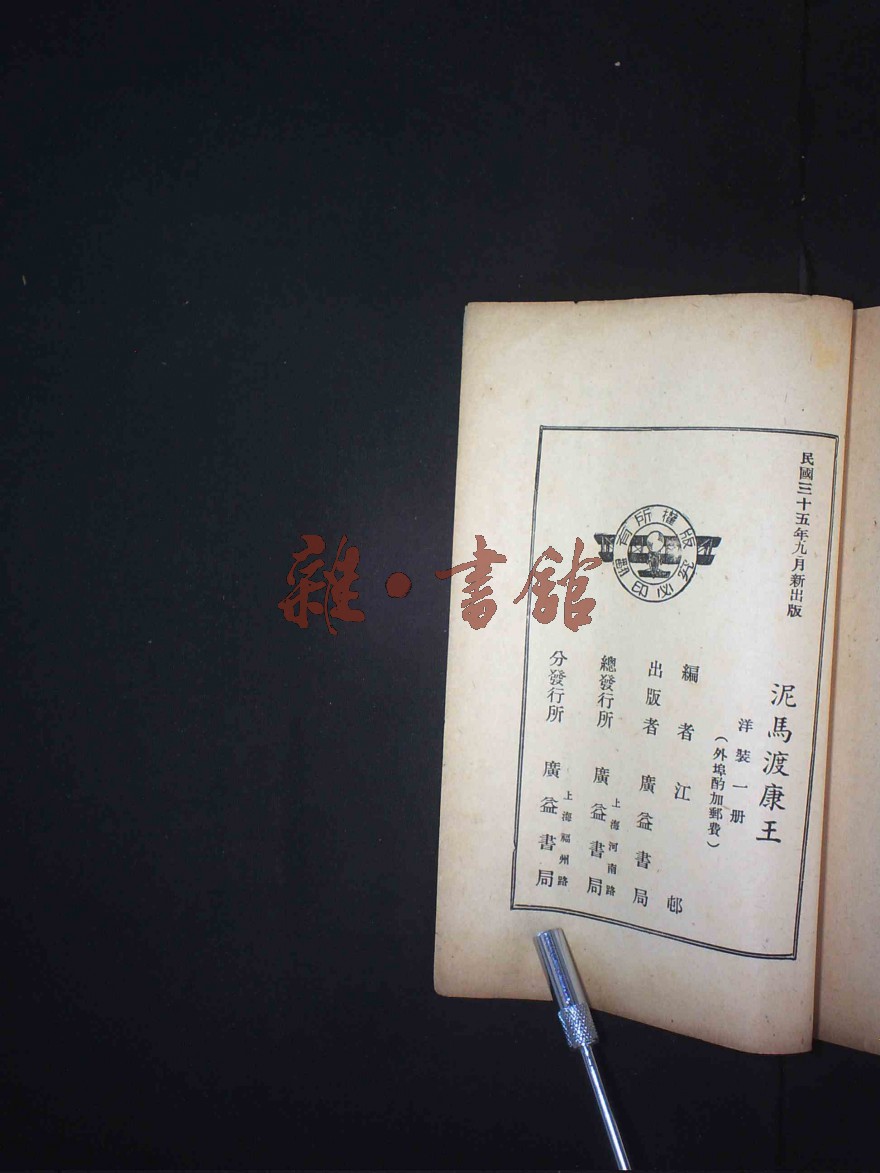 民國三十五年九月新出版
泥馬渡康王
洋裝一册
（外埠酌加郵費）
編者 江邨
出版者 廣益書局
總發行所 上海河南路 廣益書局
分發行所 上海福州路 廣益書局
版權所有
翻印必究
雜·書館